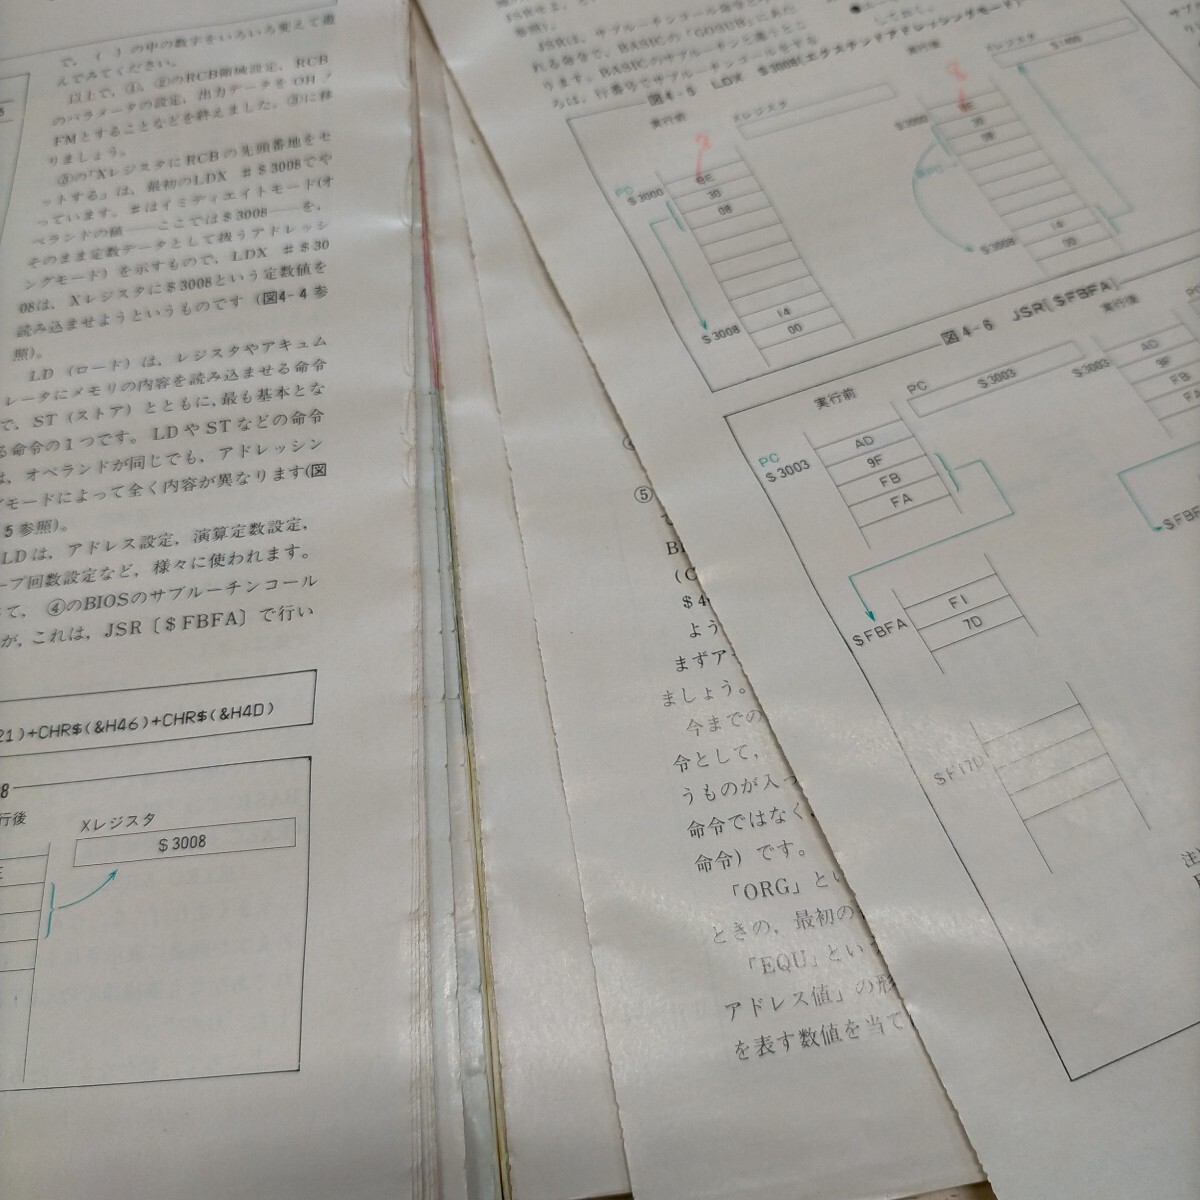 で,( )の中の数字をいろいろ変えて遊
えてみてください。
以上で, ①, ②のRCB領域設定, RCB
のパラメータの設定, 出力データをOH!
FMとすることなどを終えました。③に移
りましょう。
③の「XレジスタにRCBの先頭番地をセ
ットする」は, 最初のLDX #$3008でや
っています。#はイミディエイトモード(オ
ペランドの値――ここでは$3008――を,
そのまま定数データとして扱うアドレッシ
ングモード)を示すもので, LDX #$30
08は, Xレジスタに$3008という定数値を
読み込ませようというものです(図4-4参
照)。
LD(ロード)は, レジスタやアキュム
レータにメモリの内容を読み込ませる命令
で, ST(ストア)とともに, 最も基本とな
る命令の1つです。LDやSTなどの命令
は, オペランドが同じでも, アドレッシン
グモードによって全く内容が異なります(図
5参照)。
LDは, アドレス設定, 演算定数設定,
ープ回数設定など, 様々に使われます。
て, ④のBIOSのサブルーチンコール
が, これは, JSR〔$FBFA〕で行い
21)+CHR$(&H46)+CHR$(&H4D)
8
行後
Xレジスタ
$3008
E
⑤
BI
(C
$4
よう
まずア
ましょう。
今までの
令として,
うものが入っ
命令ではなく,
命令)です。
「ORG」とい
ときの, 最初の
「EQU」という
アドレス値」の形
を表す数値を当て
参照)。
JSRは, サブルーチンコール命令と
れる命令で, BASICの「GOSUB」にあた
ります。BASICのサブルーチンと違うとこ
ろは, 行番号でサブルーチンコールをする
しておく。
図4-5 LDX $3008(エクステンドアドレッシングモード)
実行前
Xレジスタ
PC
$3000
BE
30
08
14
00
$3008
実行後
Xレジスタ
$1400
$3000
BE
30
08
PC
$3008
14
00
図4-6 JSR[$FBFA]
実行前
PC
$3003
PC
$3003
AD
9F
FB
FA
$FBFA
F1
7D
$F17D
実行後
$3003
AD
9F
FB
FA
PC
$FBF
注